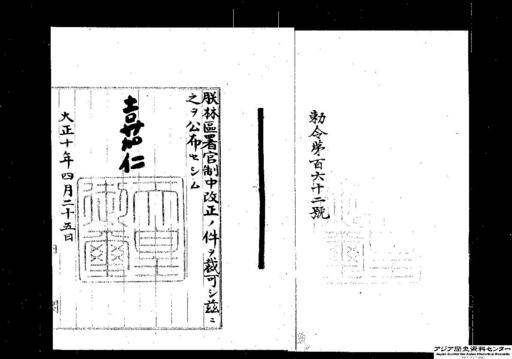 勅令第百六十二號
朕林區署官制中改正ノ件ヲ裁可シ茲ニ
之ヲ公布セシム
嘉仁
天皇御璽
大正十年四月二十五日
アジア歴史資料センター
Japan Center for Asian Historical Records